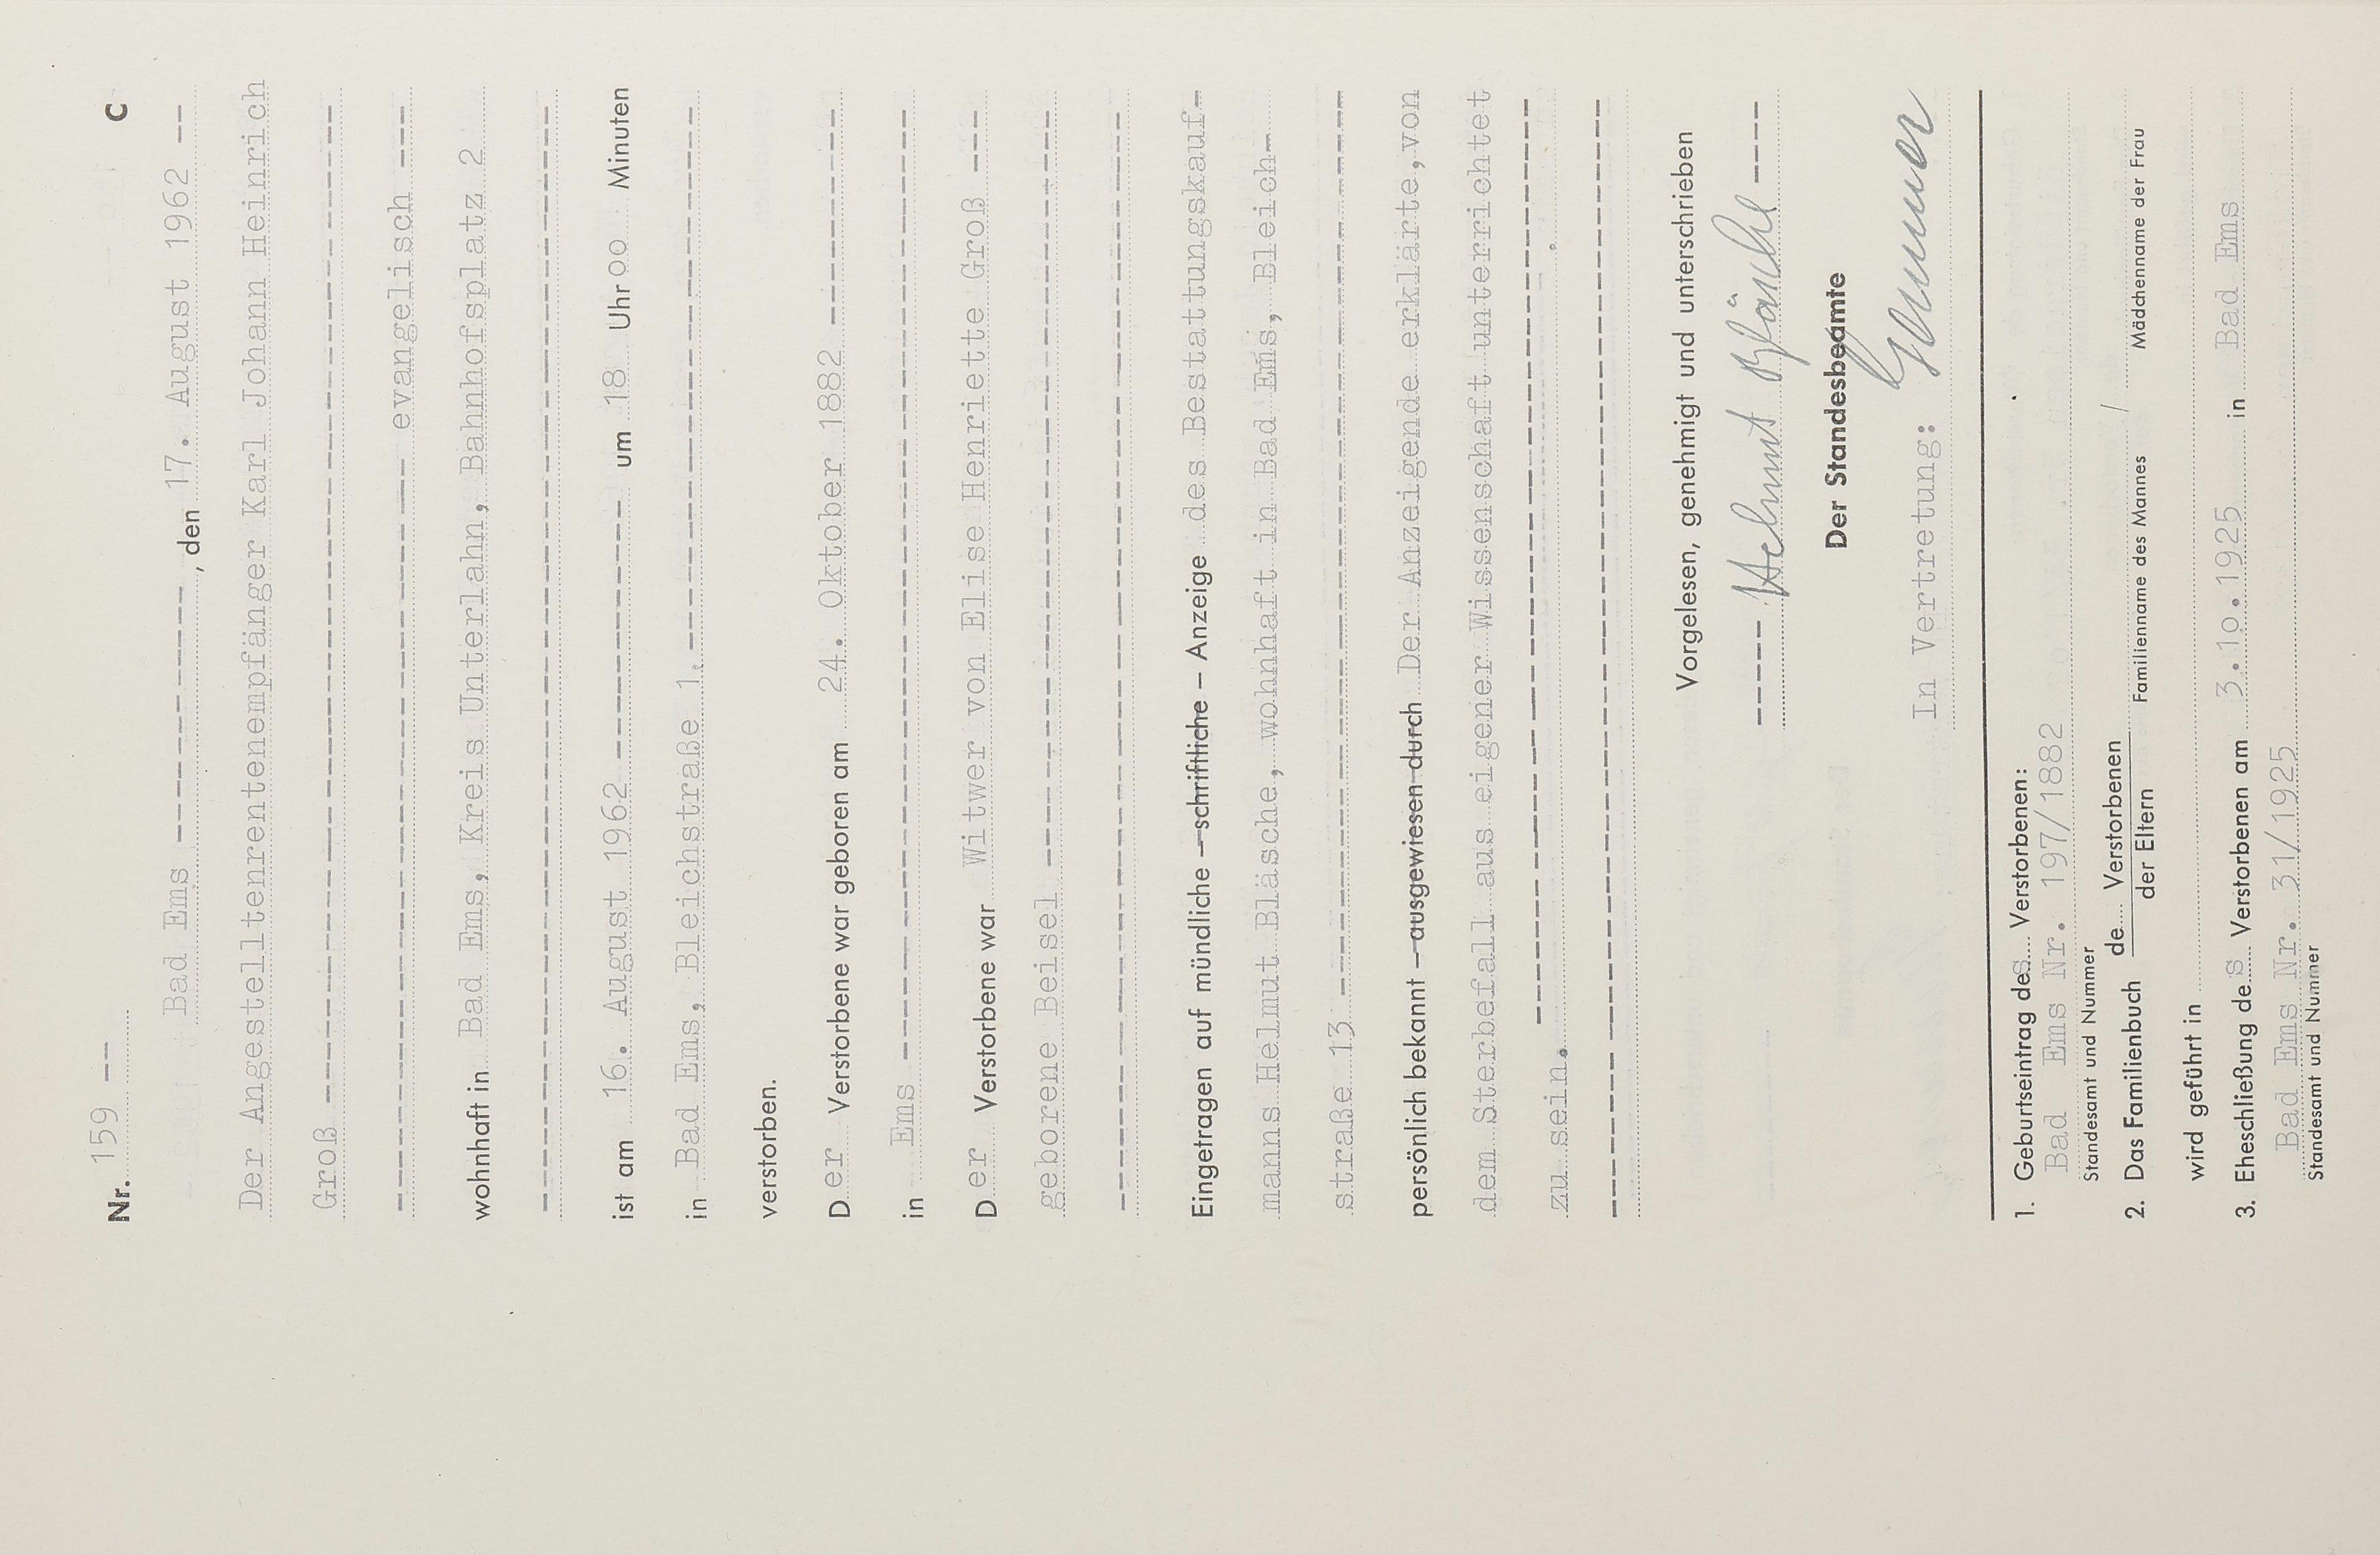 Nr. 159 -- C
Bad Ems ------------, den 17. August 1962 --
Der Angestelltenrentenempfänger Karl Johann Heinrich
Groß
evangelisch ---
wohnhaft in Bad Ems, Kreis Unterlahn, Bahnhofsplatz 2
ist am 16. August 1962 ------------ um 18 Uhr 00 Minuten
in Bad Ems, Bleichstraße 1.
verstorben.
Der Verstorbene war geboren am 24. Oktober 1882
in Ems
Der Verstorbene war Witwer von Elise Henriette Groß ---
geborene Beisel
Eingetragen auf mündliche – schriftliche – Anzeige des Bestattungskauf-
manns Helmut Bläsche, wohnhaft in Bad Ems, Bleich-
straße 13
persönlich bekannt – ausgewiesen durch Der Anzeigende erklärte, von
dem Sterbefall aus eigener Wissenschaft unterrichtet
zu sein.
Vorgelesen, genehmigt und unterschrieben
----- Helmut Bläsche ----
Der Standesbeamte
In Vertretung:
1. Geburtseintrag des Verstorbenen:
Bad Ems Nr. 197/1882
Standesamt und Nummer
2. Das Familienbuch de... Verstorbenen /
der Eltern Familienname des Mannes Mädchenname der Frau
wird geführt in
3. Eheschließung des Verstorbenen am 3.10.1925 in Bad Ems
Bad Ems Nr. 31/1925
Standesamt und Nummer